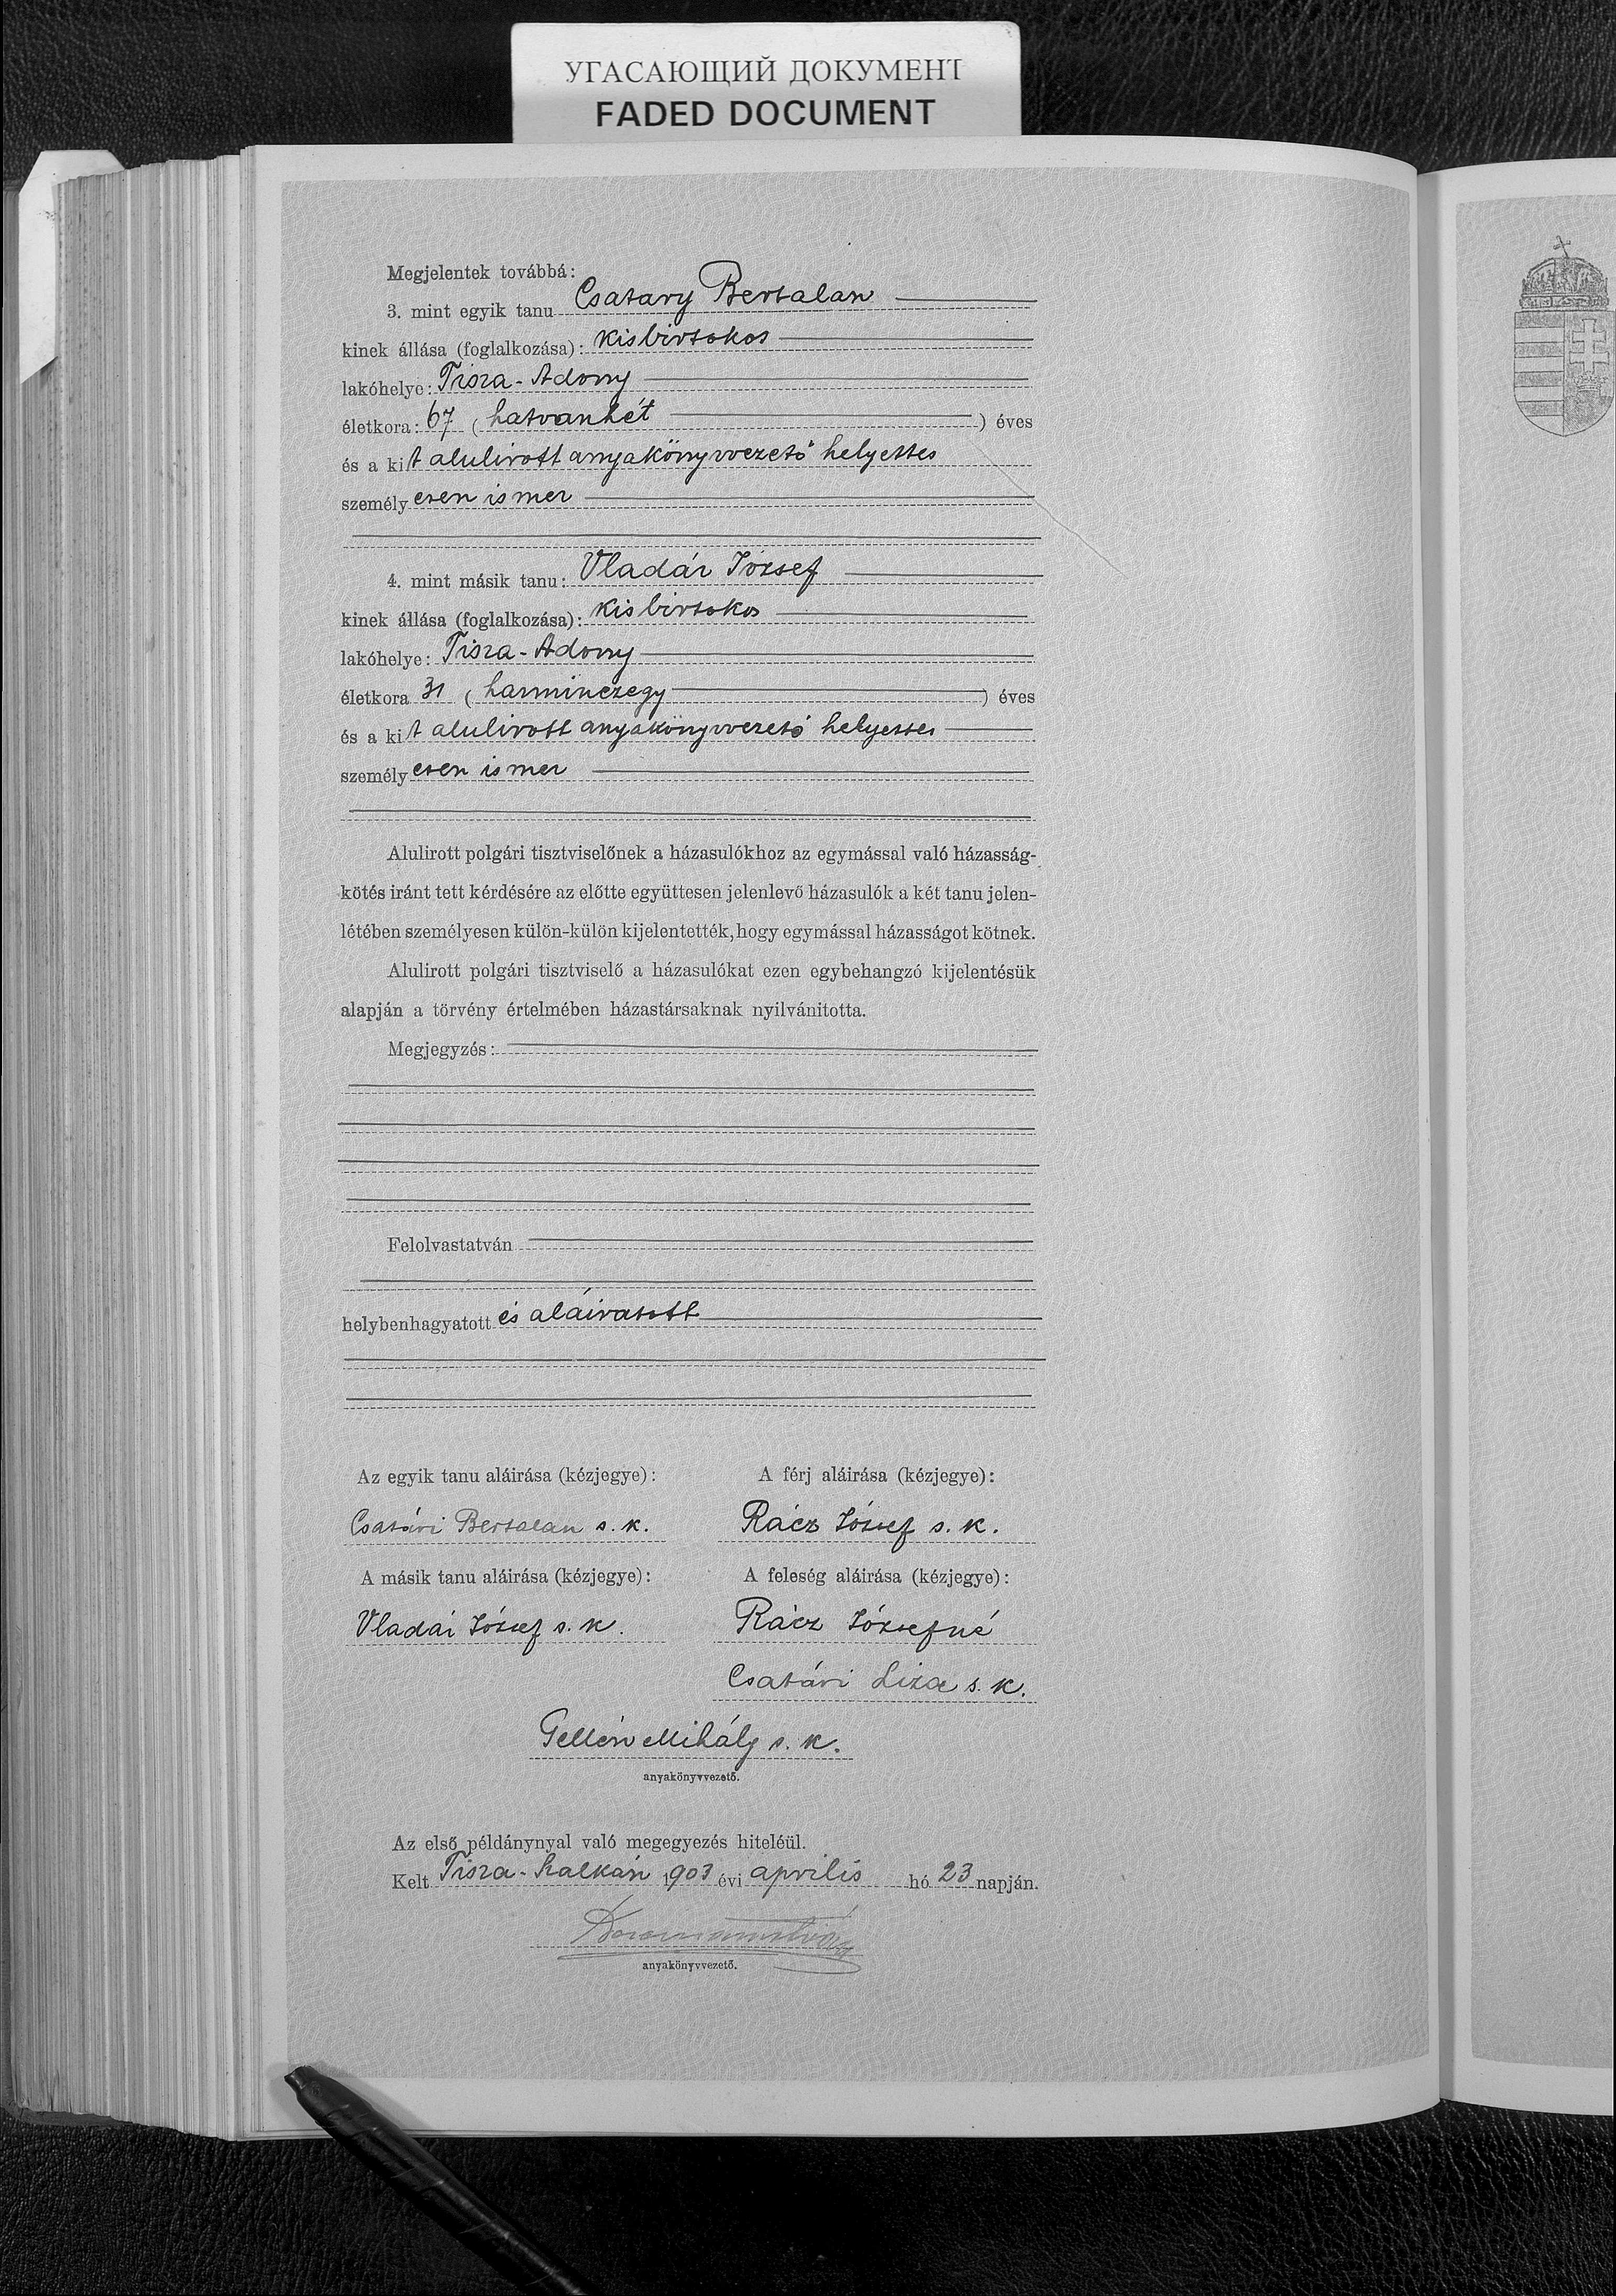 УГАСАЮЩИЙ ДОКУМЕНТ
FADED DOCUMENT
Megjelentek továbbá:
3. mint egyik tanu Csatary Bertalan
kinek állása (foglalkozása): kisbirtokos
lakóhelye: Tisza-Adony
életkora: 67 (hatvanhét) éves
és a kit alulirott anyakönyvvezető helyettes
személyesen ismer
4. mint másik tanu: Vladár József
kinek állása (foglalkozása): kisbirtokos
lakóhelye: Tisza-Adony
életkora 31 (harminczegy) éves
és a kit alulirott anyakönyvvezető helyettes
személyesen ismer
Alulirott polgári tisztviselőnek a házasulókhoz az egymással való házasság-
kötés iránt tett kérdésére az előtte együttesen jelenlevő házasulók a két tanu jelen-
létében személyesen külön-külön kijelentették, hogy egymással házasságot kötnek.
Alulirott polgári tisztviselő a házasulókat ezen egybehangzó kijelentésük
alapján a törvény értelmében házastársaknak nyilvánitotta.
Megjegyzés:
Felolvastatván
helybenhagyatott és aláiratott
Az egyik tanu aláirása (kézjegye): A férj aláirása (kézjegye):
Csatári Bertalan s. k. Rácz József s. k.
A másik tanu aláirása (kézjegye): A feleség aláirása (kézjegye):
Vladár József s. k. Rácz Józsefné
Csatári Liza s. k.
Gellén Mihály s. k.
anyakönyvvezető.
Az első példánynyal való megegyezés hiteléül.
Kelt Tisza-Szalkán 1903 évi április hó 23 napján.
anyakönyvvezető.